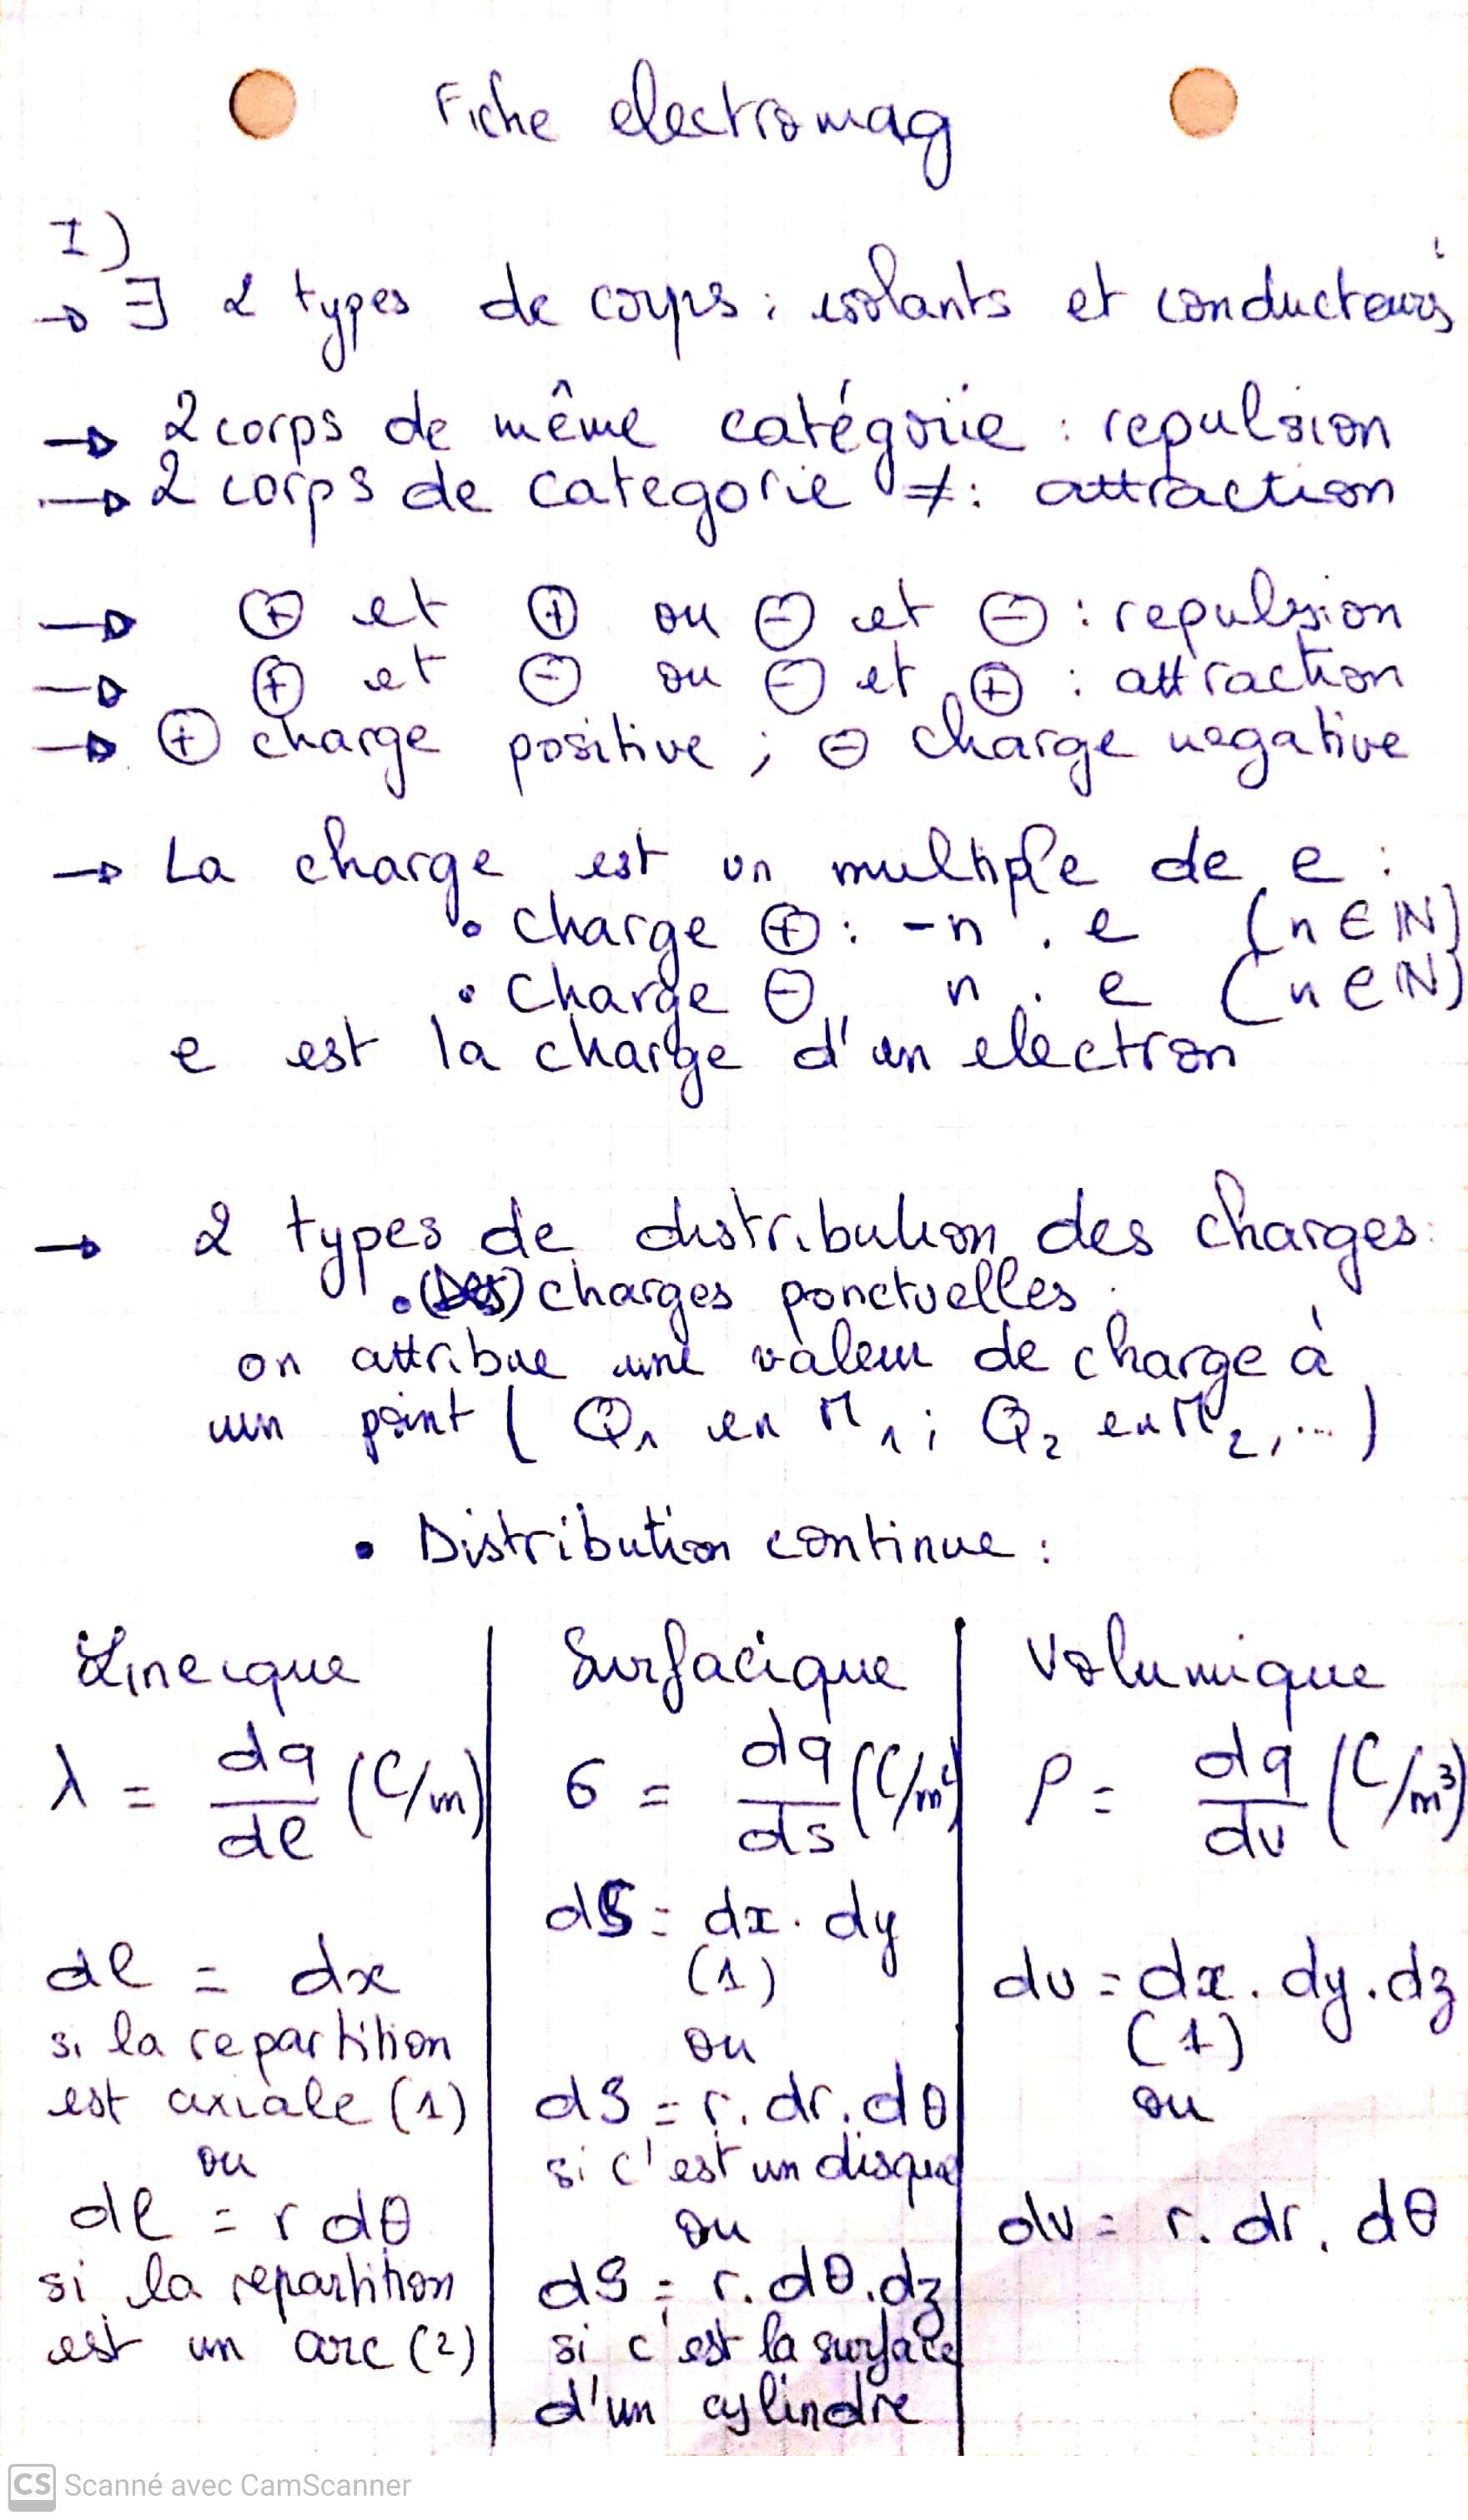 Fiche electromag
I)
→ ∃ 2 types de corps : isolants et conducteurs
→ 2 corps de même catégorie : repulsion
→ 2 corps de categorie ≠ : attraction
→ ⊕ et ⊕ ou ⊖ et ⊖ : repulsion
→ ⊕ et ⊖ ou ⊖ et ⊕ : attraction
→ ⊕ charge positive ; ⊖ charge negative
→ La charge est un multiple de e :
• charge ⊕ : -n . e (n ∈ ℕ)
• Charge ⊖ n . e (n ∈ ℕ)
e est la charge d'un electron
→ 2 types de distribution des charges :
• (Des) charges ponctuelles :
on attribue une valeur de charge à
un point ( Q₁ en M₁ ; Q₂ en M₂, ... )
• Distribution continue :
Lineique
λ = dq/dl (C/m)
dl = dx
si la repartition
est axiale (1)
ou
dl = r dθ
si la repartition
est un arc (2)
Surfacique
σ = dq/ds (C/m²)
dS = dx . dy
(1)
ou
dS = r. dr. dθ
si c'est un disque
ou
dS = r. dθ. dz
si c'est la surface
d'un cylindre
Volumique
ρ = dq/dv (C/m³)
dv = dx . dy . dz
(1)
ou
dv = r. dr. dθ
CS Scanné avec CamScanner